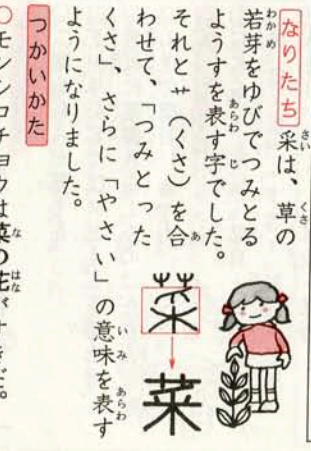 なりたち 采は、草の
若芽をゆびでつみとる
ようすを表す字でした。
それと艹（くさ）を合
わせて、「つみとった
くさ」、さらに「やさい」の意味を表す
ようになりました。
菜
つかいかた
○モンシロチョウは菜の花が